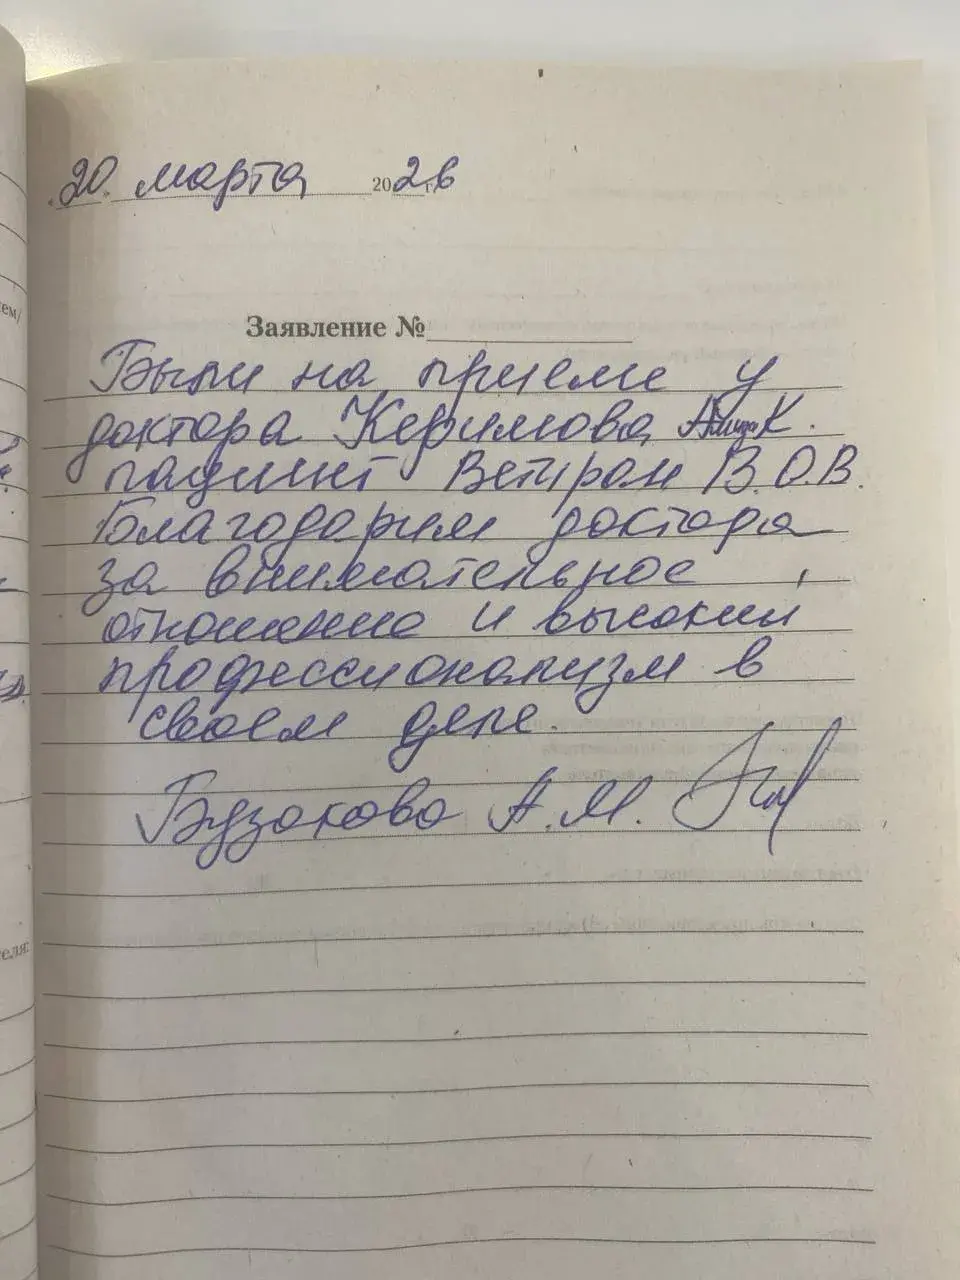 20. марта 2026 г.
Заявление №
Были на приеме у
доктора Керимова К.
пациент В.О.В.
Благодарим доктора
за внимательное
отношение и высокий
профессионализм в
своем деле.
Бузакова А.М.